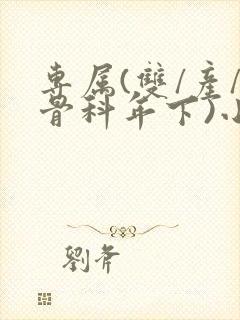 專属(雙/產/
骨科年下)小
劉斧